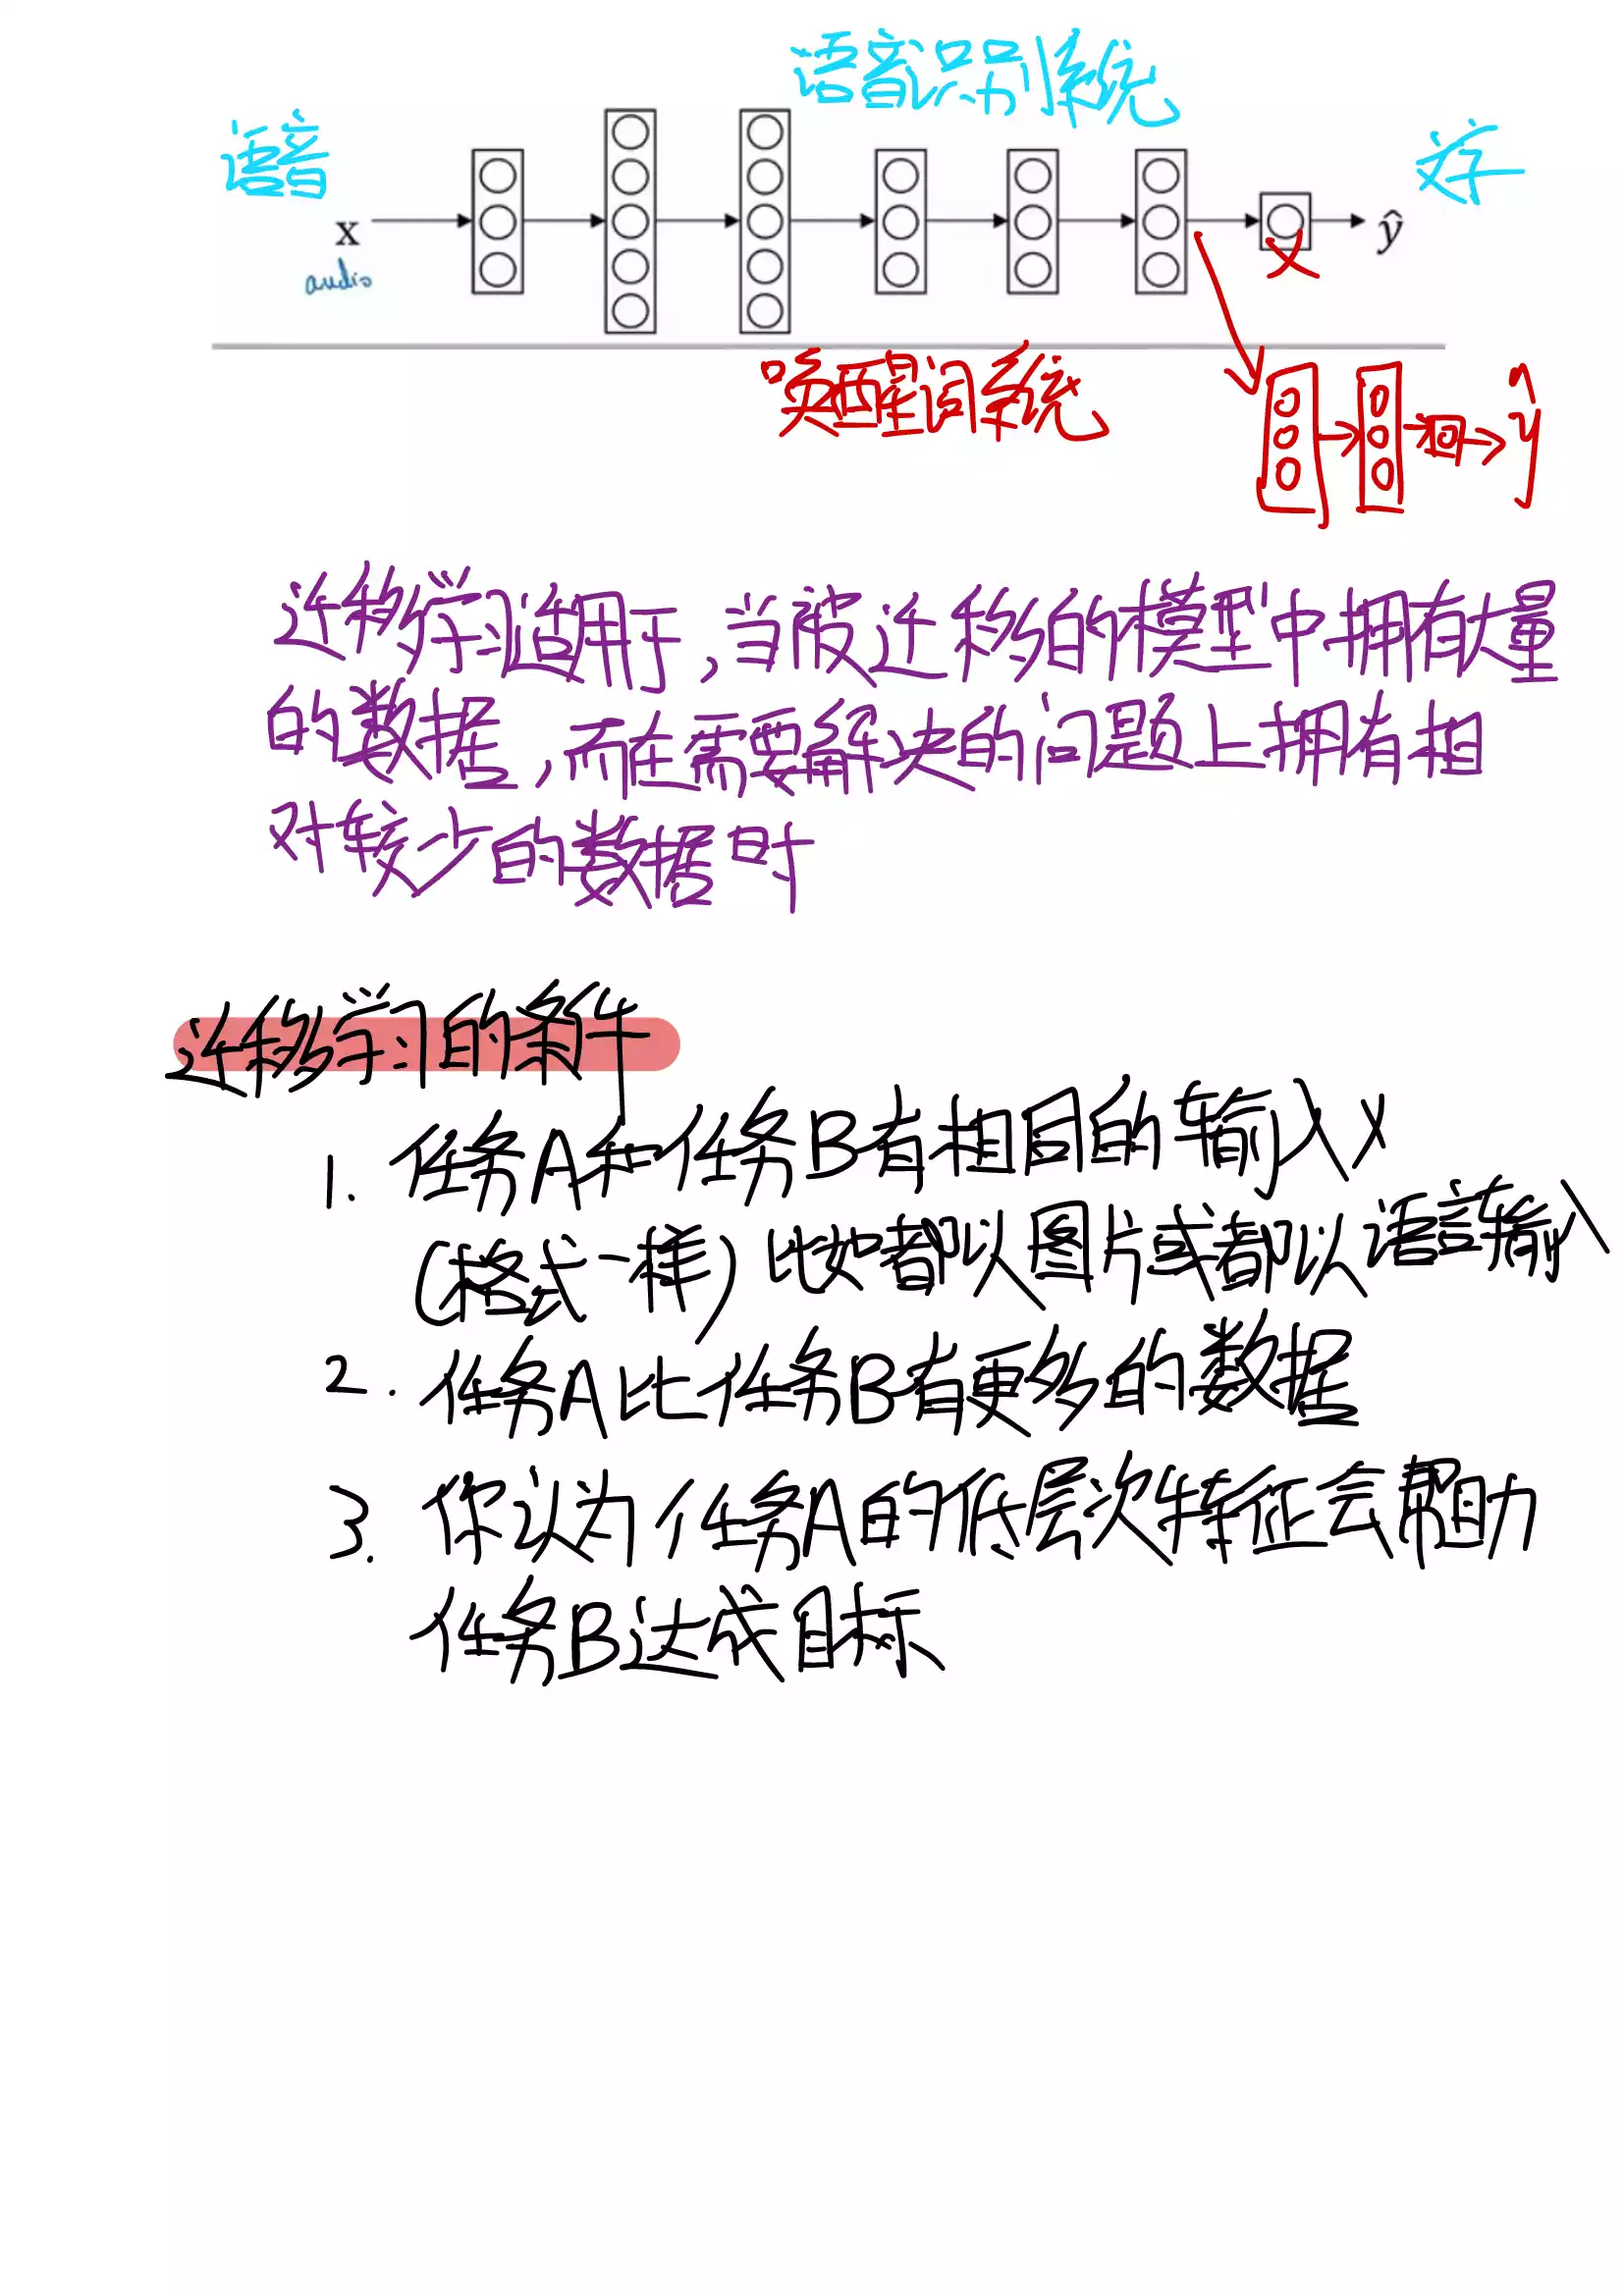 语音识别系统
语音
文字
x
ŷ
audio
唤醒词系统
ŷ
迁移学习适用于,当被迁移的模型中拥有大量
的数据,而在需要解决的问题上拥有相
对较少的数据时
迁移学习的条件
1. 任务A和任务B有相同的输入x
(格式一样)比如都以图片或都以语言输入
2. 任务A比任务B有更多的数据
3. 你认为任务A的低层次特征会帮助
任务B达成目标